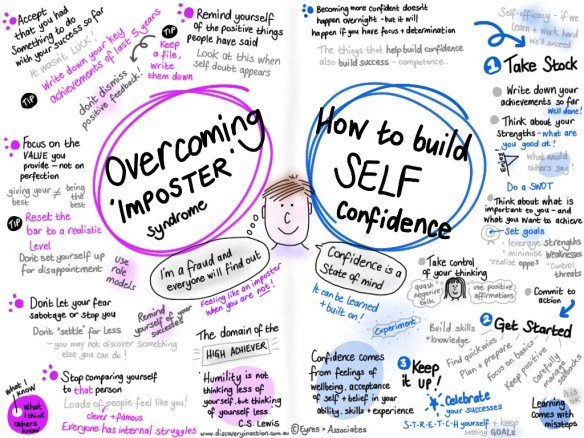 Accept
that you had
something to do
with your success so far
It wasn't LUCK!
TIP
Write down your key
achievements of last 5 years
don't dismiss
positive feedback!
TIP
Keep
a file,
write
them down
Remind yourself
of the positive things
people have said
Look at this when
self doubt appears
Overcoming
'IMPOSTER'
syndrome
Focus on the
VALUE you
provide - not on
perfection
giving your best ≠ being the best
TIP
Reset the
bar to a realistic
Level
Don't set yourself up
for disappointment
use
role
models
I'm a fraud and
everyone will find out
Feeling like an imposter
when you are not!
Don't let your fear
sabotage or stop you
Don't 'settle' for less
- you may not discover something
else you can do!
Remind
yourself of your
successes
The domain of the
HIGH ACHIEVER
Stop comparing yourself
to that person
Loads of people feel like you!
clever + famous
Everyone has internal struggles
what I
know
What I
think
others
know!
'Humility is not
thinking less of
yourself, but thinking
of yourself less'
C.S. Lewis
www.discoveryinaction.com.au
© Eyres + Associates
Becoming more confident doesn't
happen overnight - but it will
happen if you have focus + determination
The things that help build confidence
also build success - competence.
How to build
SELF
confidence
Confidence is a
State of mind
It can be learned
+ built on!
Experiment
Confidence comes
from feelings of
wellbeing, acceptance
of self + belief in your
ability, skills + experience
Self-efficacy - if we
learn + work hard
we'll succeed
1 Take Stock
Write down your
achievements so far
Well done!
Think about your
strengths - what are
you good at?
Enjoy!
What would
others say!
Do a SWOT
Think about what is
important to you - and
what you want to achieve
Set goals
leverage strengths
minimise weaknesses
realise opps
control
threats
Take control
of your thinking
quash
negative
talk
use positive
affirmations
Commit to
action
2 Get Started
Build skills
+ knowledge
Find quickwins
Plan + prepare
Focus on basics
Keep positive
Carefully
manage
setbacks
It is
ok
Learning
comes with
missteps
3 Keep
it up!
Celebrate
your successes
S-T-R-E-T-C-H yourself + keep
setting GOALS